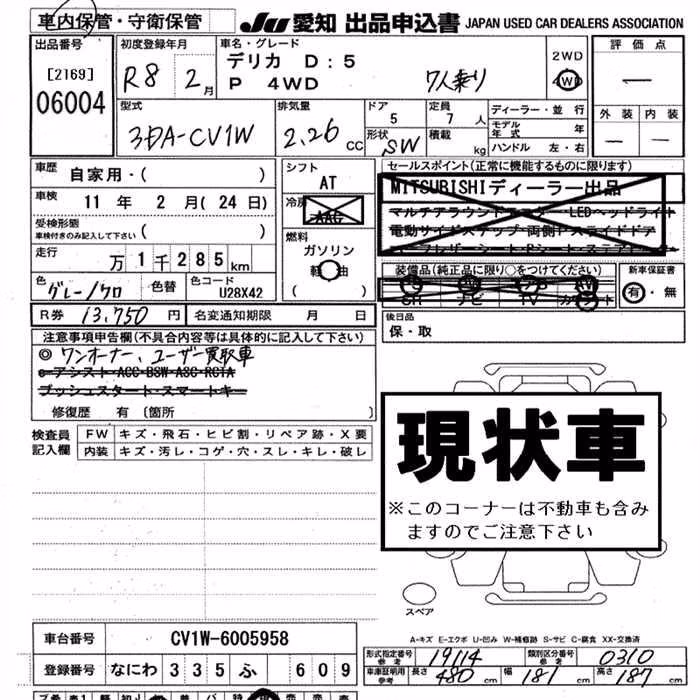 車内保管・守衛保管 JU 愛知 出品申込書 JAPAN USED CAR DEALERS ASSOCIATION
出品番号 初度登録年月 車名・グレード 評価点
[2169] R8 2月 デリカ D:5 2WD
06004 P 4WD 7人乗り 4WD
型式 排気量 ドア 定員 ディーラー・並行 外装 内装
3DA-CV1W 2.26 CC 5 7人 モデル年式 年
形状 SW 積載 kg ハンドル 左・右
車歴 自家用・( ) シフト セールスポイント(正常に機能するものに限ります)
車検 11年 2月(24日) AT MITSUBISHIディーラー出品
受検形態 冷房 AAC マルチアラウンドモニター・LEDヘッドライト
車検付きのみ記入して下さい ( ) 燃料 電動サイドステップ・両側Pスライドドア
走行 万1千285km ガソリン
軽油 装備品(純正品に限り○をつけてください) 新車保証書
色 グレー/クロ 色替 色コード U28X42 SR ナビ TV 有・無
R券 13,750円 名変通知期限 月 日 後日品
注意事項申告欄(不具合内容等は具体的に記入して下さい) 保・取
◎ワンオーナー、ユーザー買取車
e-アシスト・ACC・BSW・ASC・RCTA
プッシュスタート・スマートキー
修復歴 有 [箇所 ]
現状車
※このコーナーは不動車も含み
ますのでご注意下さい
検査員記入欄 FW キズ・飛石・ヒビ割・リペア跡・X要
内装 キズ・汚レ・コゲ・穴・スレ・キレ・破レ
スペア
A-キズ E-エクボ U-凹み W-補修跡 S-サビ C-腐食 XX-交換済
車台番号 CV1W-6005958
型式指定番号 参考 19114 類別区分番号 参考 0310
登録番号 なにわ 335 ふ 609
車庫証明用 参考 長さ 480cm 幅 181cm 高さ 187cm